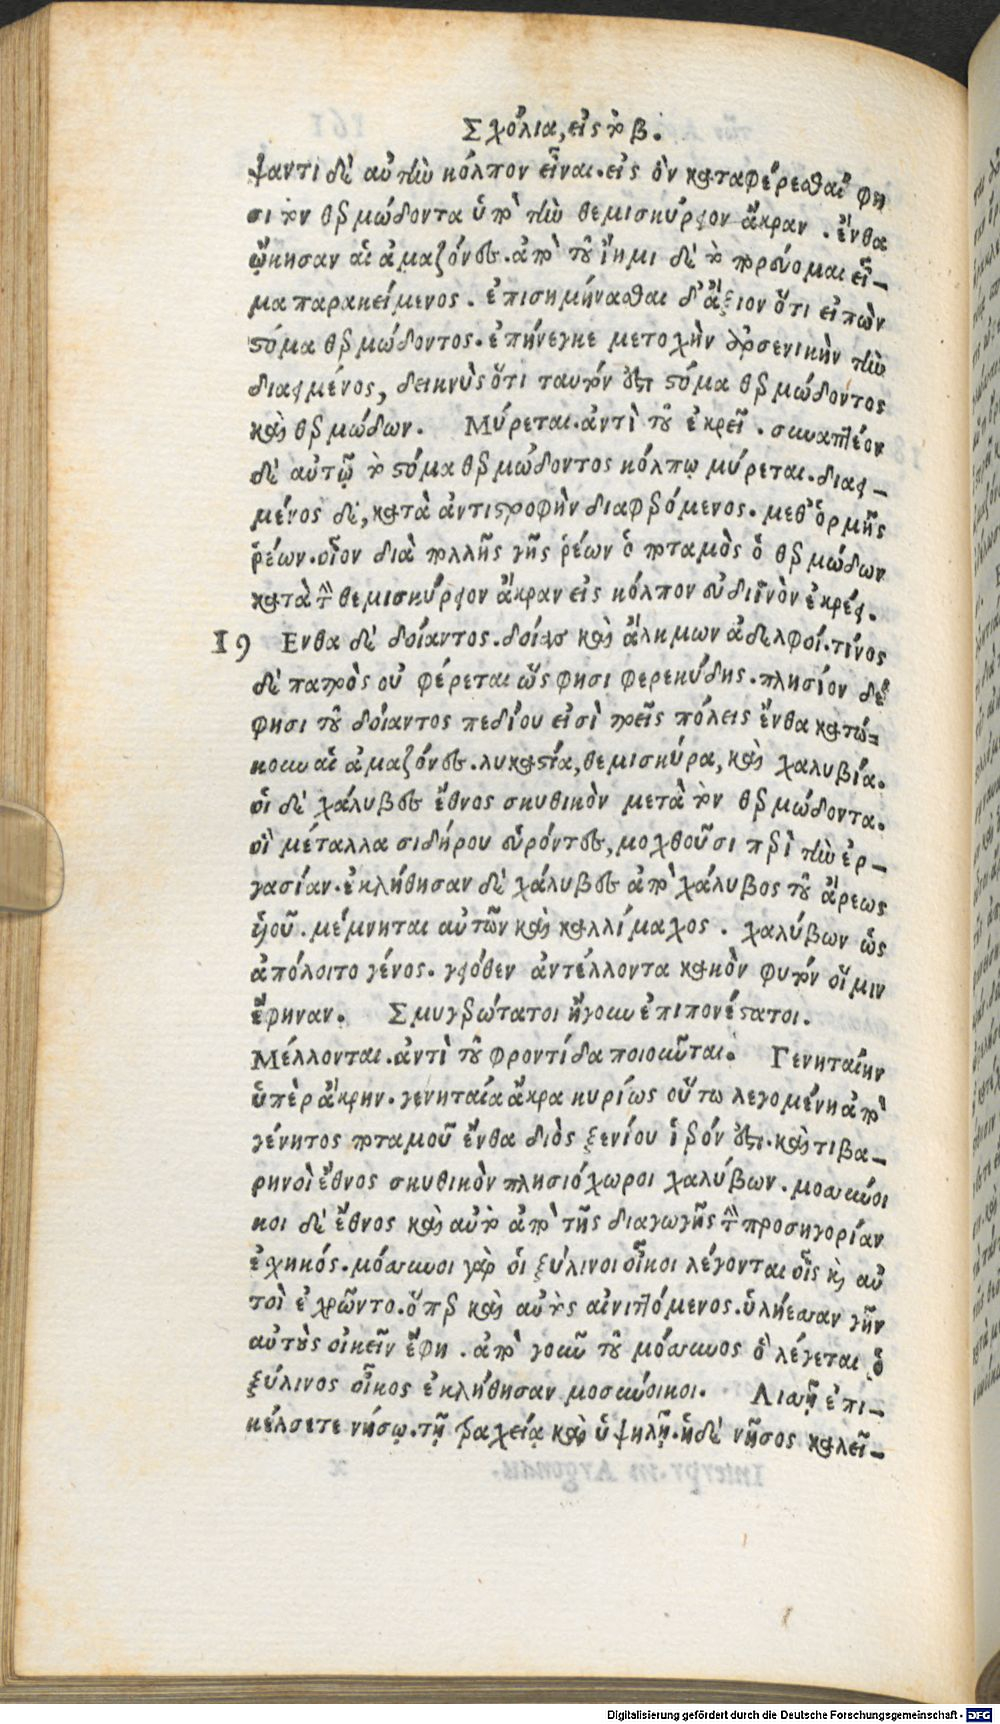 Σχόλια, εἰς τὸ β.
ψαντι δὲ αὐτὴν κόλπον εἶναι. εἰς ὃν καταφέρεσθαί φη
σι τὸν θερμώδοντα ὑπὸ τὴν θεμισκύρειον ἄκραν. ἔνθα
ᾤκησαν αἱ ἀμαζόνες. ἀπὸ τοῦ ἵημι δὲ τὸ πορεύομαι εἷ-
μα παρακείμενος. ἐπισημήνασθαι δ' ἄξιον ὅτι εἰπὼν
στόμα θερμώδοντος. ἐπήνεγκε μετοχὴν ἀρσενικὴν τὴν
διαειμένος, δεικνὺς ὅτι ταυτόν ἐστι στόμα θερμώδοντος
καὶ θερμώδων. Μύρεται. ἀντὶ τοῦ ἐκρεῖ. συναπτέον
δὲ αὐτῷ τὸ στόμα θερμώδοντος κόλπῳ μύρεται. διαει-
μένος δὲ, κατὰ ἀντιστροφὴν διαφερόμενος. μεθ' ὁρμῆς
ῥέων. οἷον διὰ πολλῆς γῆς ῥέων ὁ ποταμὸς ὁ θερμώδων
κατὰ τὴν θεμισκύρειον ἄκραν εἰς κόλπον εὐδιεινὸν ἐκρέει.
19 Ενθα δὲ δοίαντος. δοίας καὶ ἄλκμων ἀδελφοί. τίνος
δὲ πατρὸς οὐ φέρεται ὥς φησι φερεκύδης. πλησίον δέ
φησι τοῦ δοίαντος πεδίου εἰσὶ τρεῖς πόλεις ἔνθα κατώ-
κουν αἱ ἀμαζόνες. λυκαστία, θεμισκύρα, καὶ χαλυβία.
οἱ δὲ χάλυβες ἔθνος σκυθικὸν μετὰ τὸν θερμώδοντα.
οἳ μέταλλα σιδήρου εὑρόντες, μοχθοῦσι περὶ τὴν ἐρ-
γασίαν. ἐκλήθησαν δὲ χάλυβες ἀπὸ χάλυβος τοῦ ἄρεως
υἱοῦ. μέμνηται αὐτῶν καὶ καλλίμαχος. χαλύβων ὡς
ἀπόλοιτο γένος. γειόθεν ἀντέλλοντα κακὸν φυτόν οἵ μιν
ἔφηναν. Σμυγερώτατοι ἤγουν ἐπιπονέστατοι.
Μέλλονται. ἀντὶ τοῦ φροντίδα ποιοῦνται. Γενηταίην
ὑπὲρ ἄκρην. γενηταία ἄκρα κυρίως οὕτω λεγομένη ἀπὸ
γένητος ποταμοῦ ἔνθα διὸς ξενίου ἱερόν ἐστι. καὶ τιβα-
ρηνοὶ ἔθνος σκυθικὸν πλησιόχωροι χαλύβων. μοσσύνοι
κοι δὲ ἔθνος καὶ αὐτὸ ἀπὸ τῆς διαγωγῆς τὴν προσηγορίαν
ἐχηκός. μόσσυνοι γὰρ οἱ ξύλινοι οἶκοι λέγονται οἷς καὶ αὐ
τοὶ ἐχρῶντο. ὅπερ καὶ αὐτὸς αἰνιττόμενος. ὑλήεσσαν γῆν
αὐτοὺς οἰκεῖν ἔφη. ἀπὸ γοῦν τοῦ μόσσυνος ὃ λέγεται ὁ
ξύλινος οἶκος ἐκλήθησαν μοσσύνοικοι. Λισσῇ ἐπι-
κέλσετε νήσῳ. τῇ τραχείᾳ καὶ ὑψηλῇ. ἡ δὲ νῆσος καλεῖ-
Digitalisierung gefördert durch die Deutsche Forschungsgemeinschaft - DFG